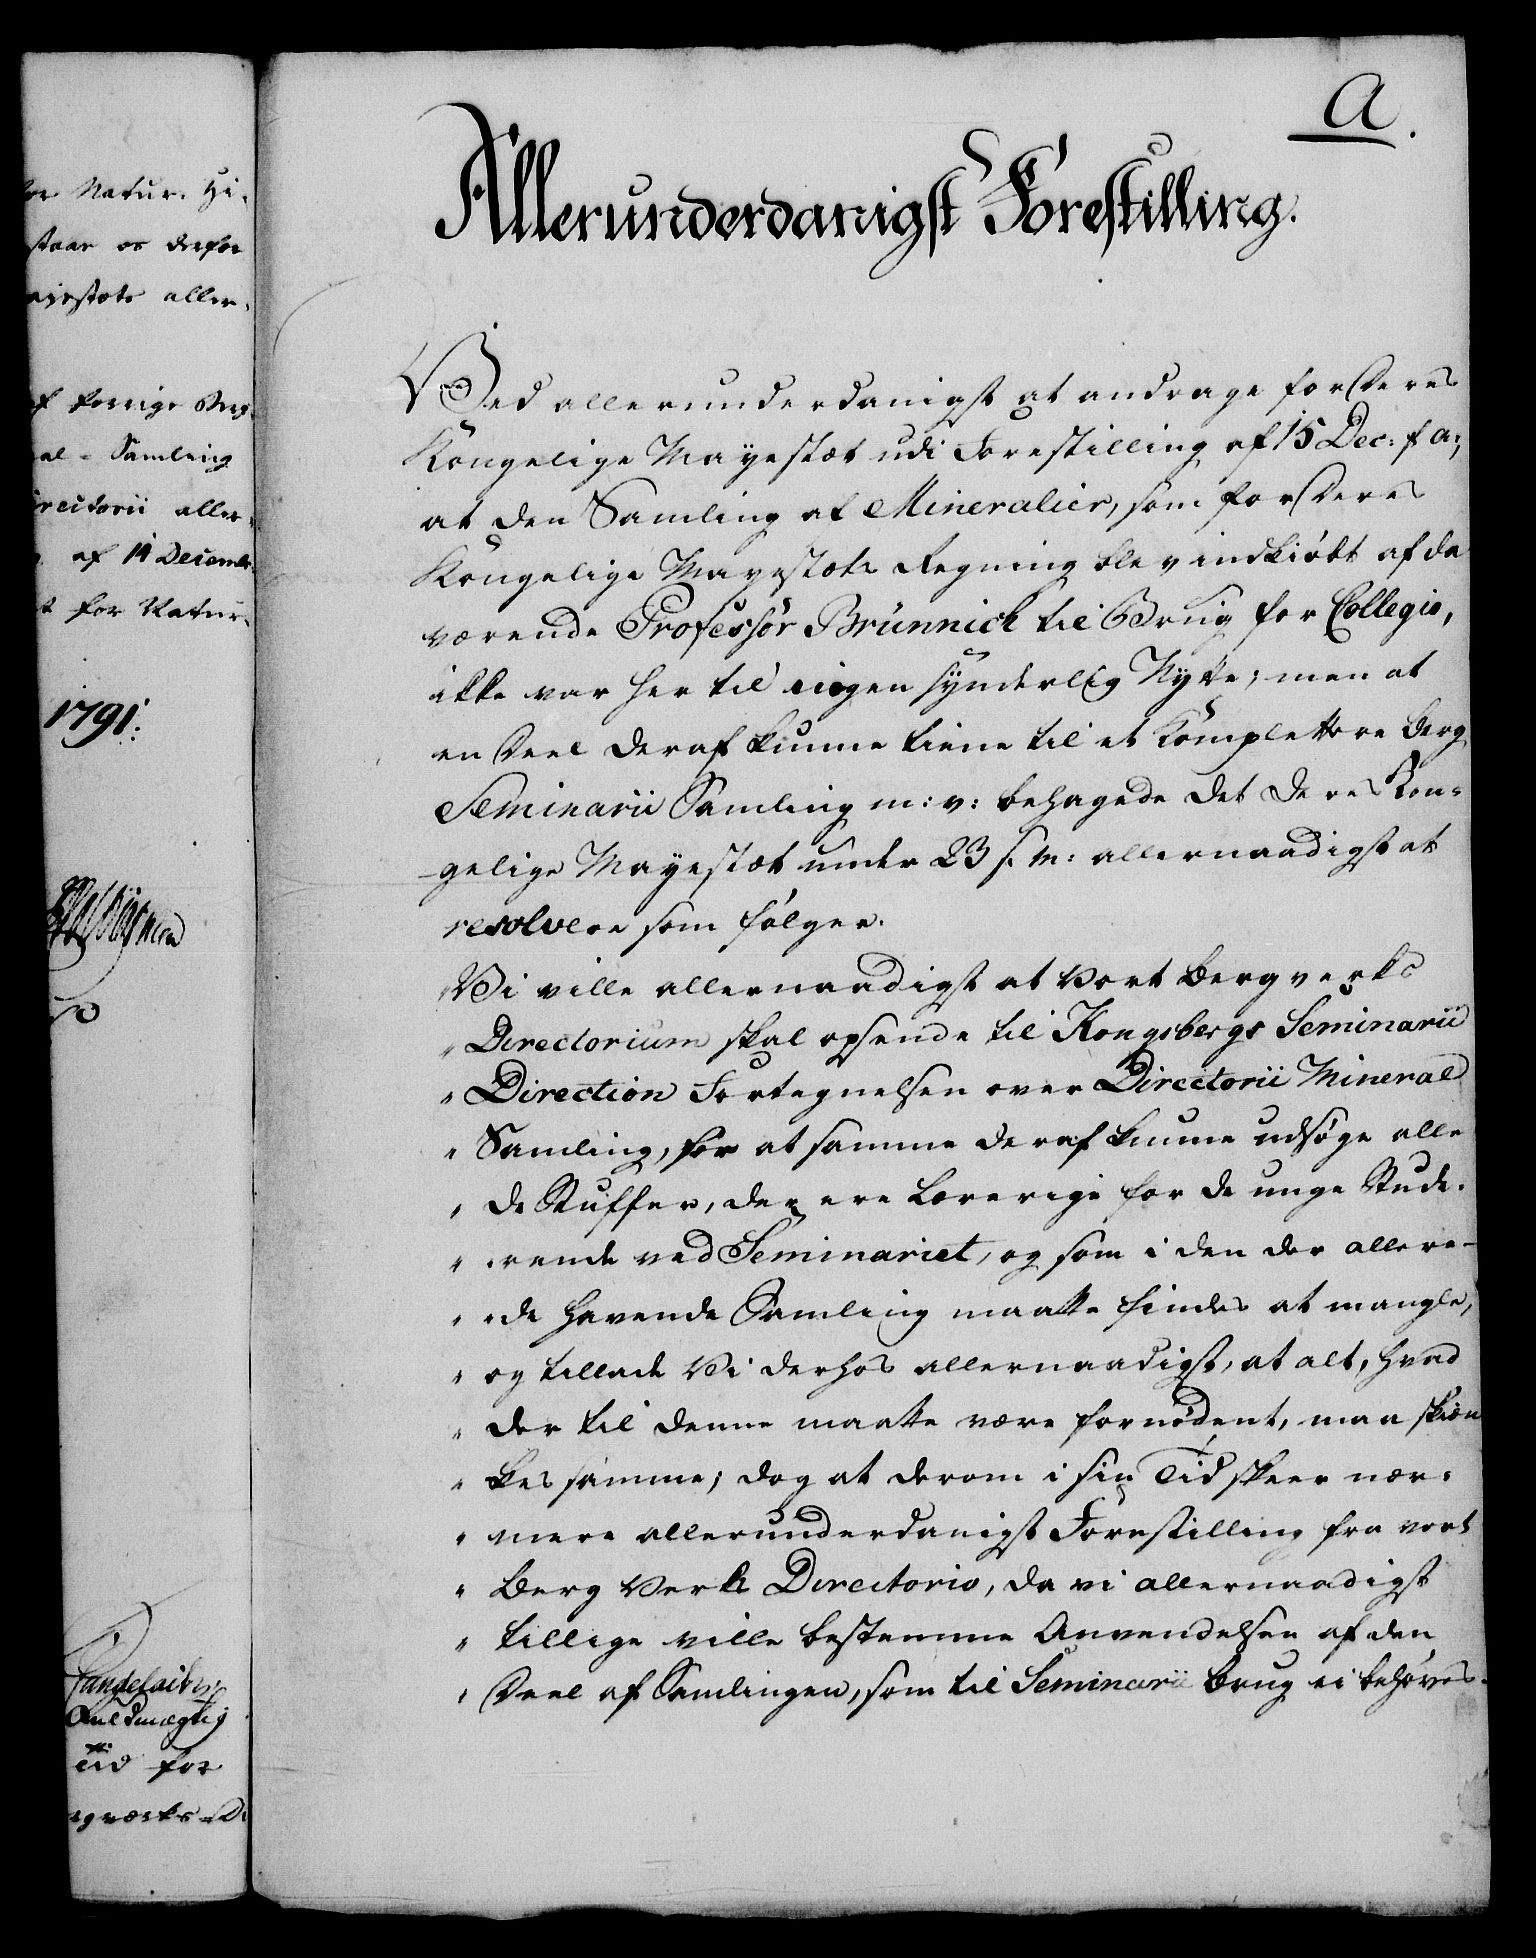 or Natur. Hi-
staar os derfor
ajestæts aller-
af forrige Berg-
al-Samling
irectorii aller-
af 14 December
t for Natur-
1791.
Fuldmægtig
tid for
rgværks-Di
A.
Allerunderdanigst Forestilling.
Ved allerunderdanigst at andrage for Deres
Kongelige Mayestæt udi Forestilling af 15 Dec: f a:,
at den Samling af Mineralier, som for Deres
Kongelige Mayestæts Regning blev indkiøbt af da
værende Professor Brünnich til Brug for Collegio,
ikke var her til nogen synderlig Nytte; men at
en Deel deraf kunne tiene til et Komplettere Berg
Seminarii Samling m: v: behagede det Deres Kon-
gelige Mayestæt under 23 s. M: allernaadigst at
resolvere som følger.
Vi ville allernaadigst at Vort Bergverks
" Directorium skal opsende til Kongsbergs Seminarii
" Direction Fortegnelsen over Directorii Mineral
" Samling, for at samme deraf kunne udsøge alle
" de Stuffer, der ere lærerige for de unge Stude-
" rende ved Seminariet, og som i den der allere-
" de havende Samling maatte findes at mangle,
" og tillade Vi derhos allernaadigst, at alt, hvad
" der til denne maatte være fornødent, maa skiæn
" kes samme; dog at derom i sin Tid skeer nær-
" mere allerunderdanigst Forestilling fra vort
" Berg Verks Directorio, da vi allernaadigst
" tillige ville bestemme Anvendelsen af den
" Deel af Samlingen, som til Seminarii Brug ei behøves.